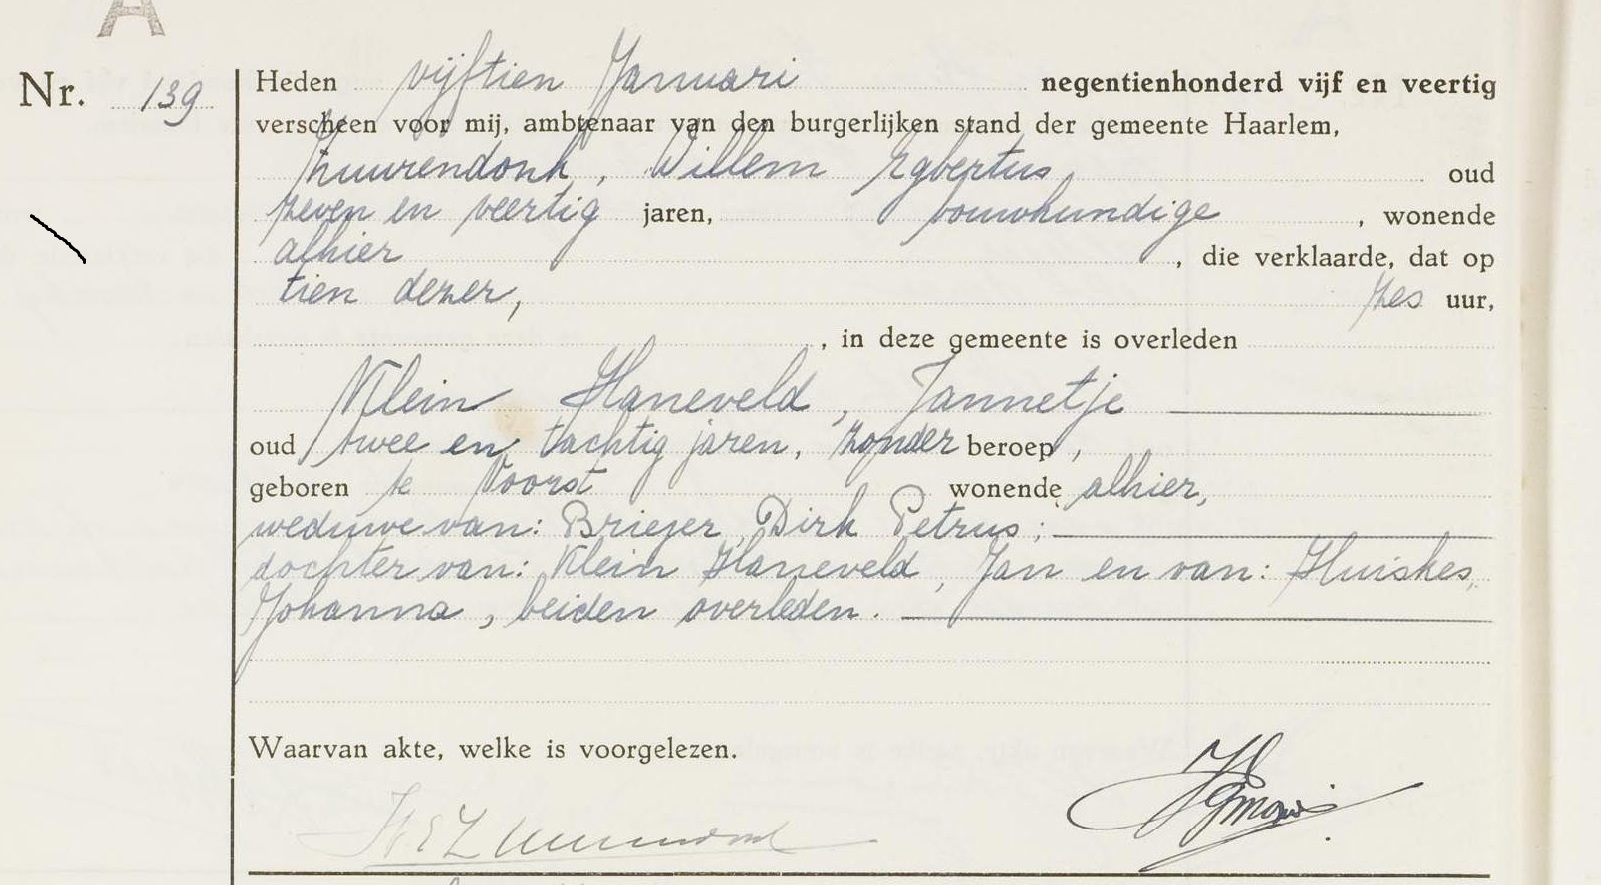 A
Nr. 139
Heden vijftien Januari negentienhonderd vijf en veertig
verscheen voor mij, ambtenaar van den burgerlijken stand der gemeente Haarlem,
Zuurendonk, Willem Egbertus, oud
zeven en veertig jaren, bouwkundige, wonende
alhier, die verklaarde, dat op
tien dezer, zes uur,
, in deze gemeente is overleden
Klein Haneveld, Jannetje
oud twee en tachtig jaren, zonder beroep,
geboren te Voorst wonende alhier,
weduwe van: Briejer, Dirk Petrus;
dochter van: Klein Haneveld, Jan en van: Huiskes,
Johanna, beiden overleden.
Waarvan akte, welke is voorgelezen.